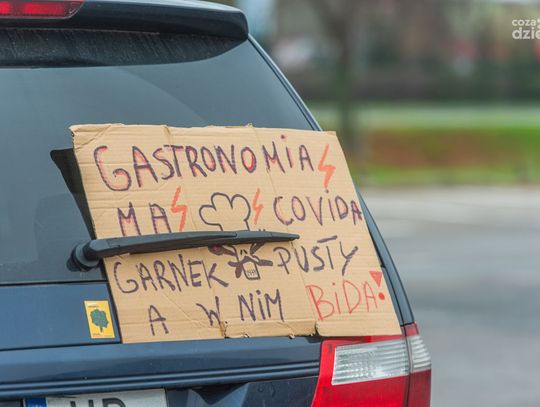 coza
dzie
GASTRONOMIA
MA COVIDA
GARNEK PUSTY
A W NIM BIDA!